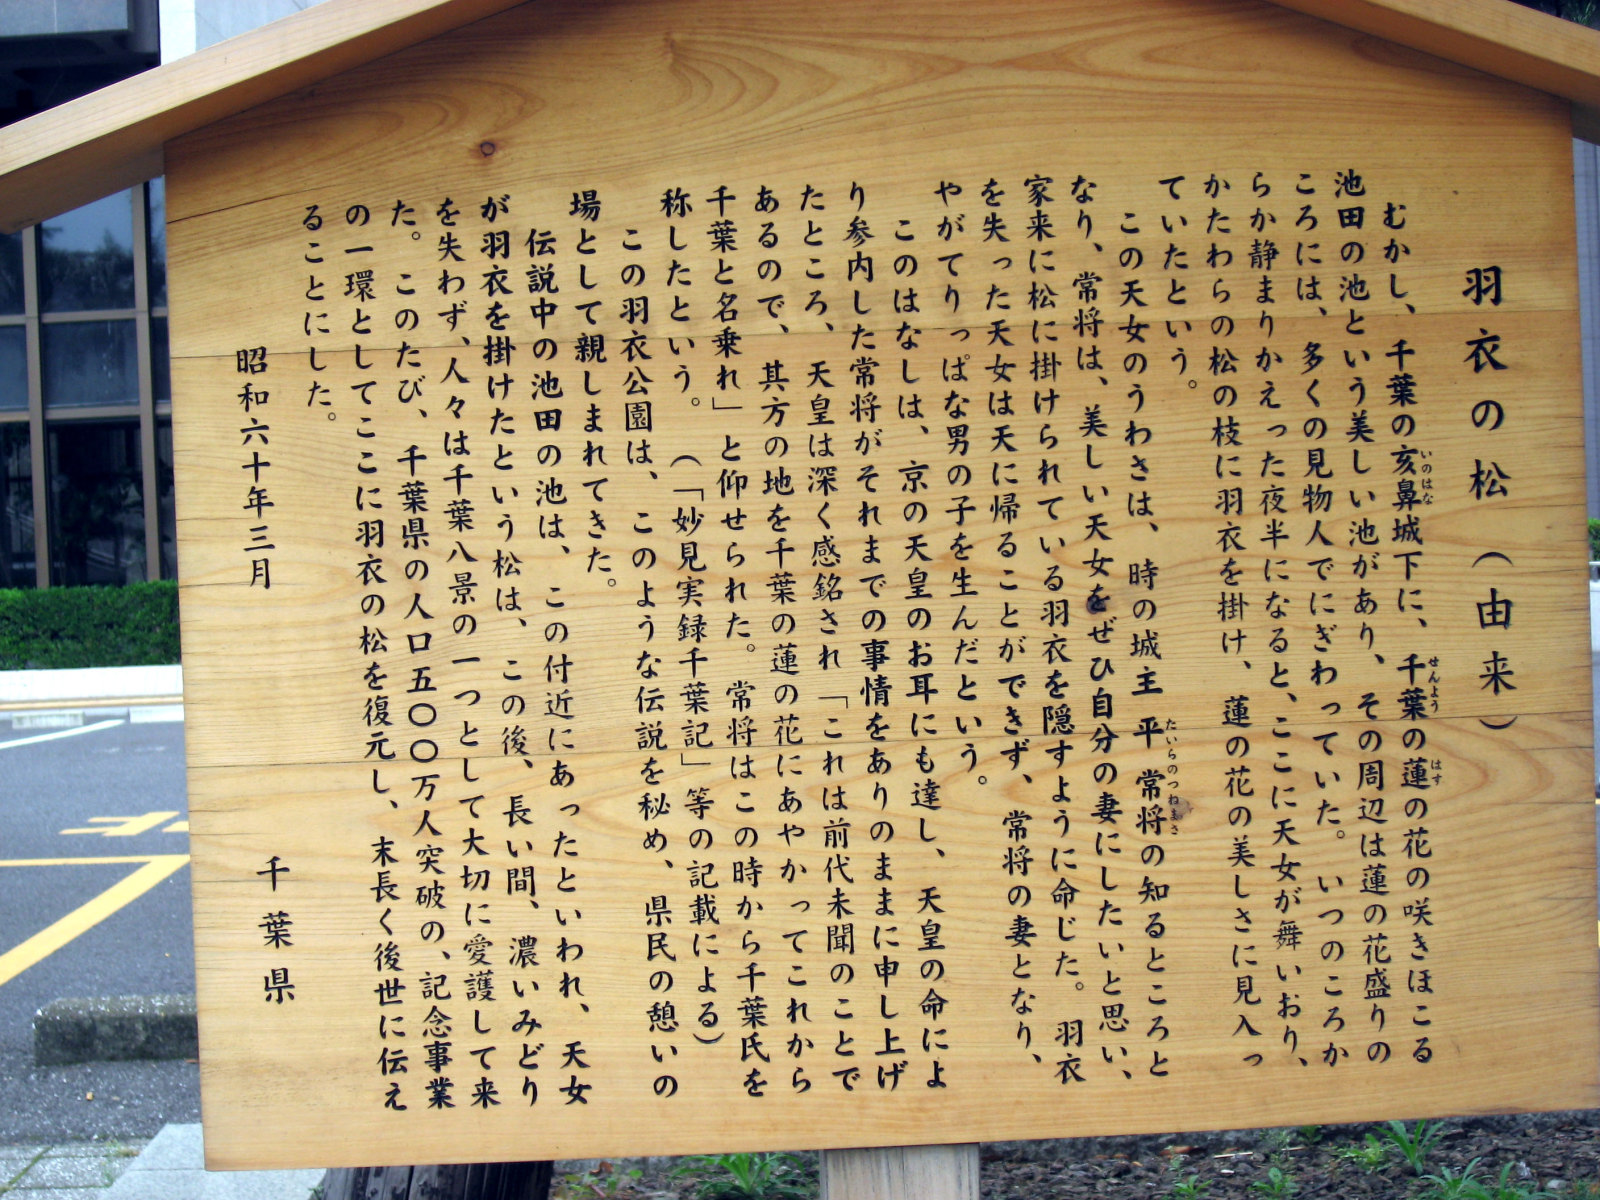 羽衣の松（由来）
むかし、千葉の亥鼻城下に、千葉の蓮の花の咲きほこる
いのはな
せんよう
はす
池田の池という美しい池があり、その周辺は蓮の花盛りの
ころには、多くの見物人でにぎわっていた。いつのころか
らか静まりかえった夜半になると、ここに天女が舞いおり、
かたわらの松の枝に羽衣を掛け、蓮の花の美しさに見入っ
ていたという。
この天女のうわさは、時の城主平常将の知るところと
たいらのつねまさ
なり、常将は、美しい天女をぜひ自分の妻にしたいと思い、
家来に松に掛けられている羽衣を隠すように命じた。羽衣
を失った天女は天に帰ることができず、常将の妻となり、
やがてりっぱな男の子を生んだという。
このはなしは、京の天皇のお耳にも達し、天皇の命によ
り参内した常将がそれまでの事情をありのままに申し上げ
たところ、天皇は深く感銘され「これは前代未聞のことで
あるので、其方の地を千葉の蓮の花にあやかってこれから
千葉と名乗れ」と仰せられた。常将はこの時から千葉氏を
称したという。（「妙見実録千葉記」等の記載による）
この羽衣公園は、このような伝説を秘め、県民の憩いの
場として親しまれてきた。
伝説中の池田の池は、この付近にあったといわれ、天女
が羽衣を掛けたという松は、この後、長い間、濃いみどり
を失わず、人々は千葉八景の一つとして大切に愛護して来
た。このたび、千葉県の人口五〇〇万人突破の、記念事業
の一環としてここに羽衣の松を復元し、末長く後世に伝え
ることにした。
昭和六十年三月
千葉県